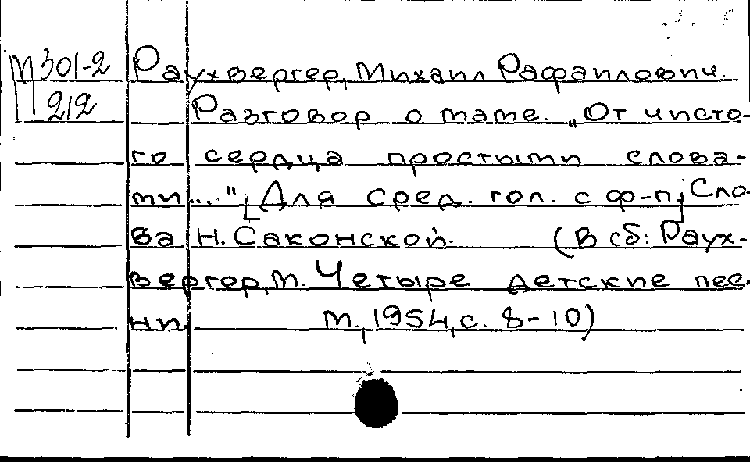 М301-2 Раухвергер, Михаил Рафаилович.
212 Разговор о маме. „От чисто-
го сердца простыми слова-
ми..." [Для сред. гол. с ф-п] Сло-
ва Н. Саконской. (В сб: Раух-
вергер, М. Четыре детские пес-
ни М, 1954, с. 8-10)